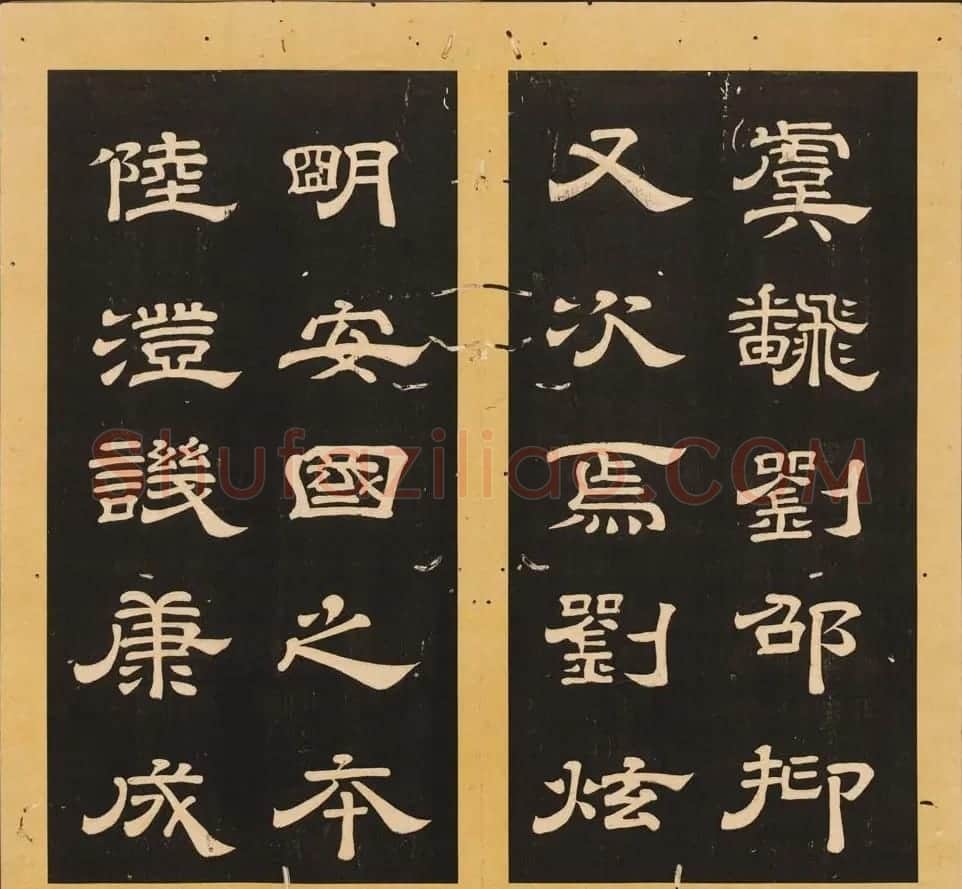 虞飜劉邵抑
又次焉劉炫
明安國之本
陸澄譏康成
Shufaziliao.COM